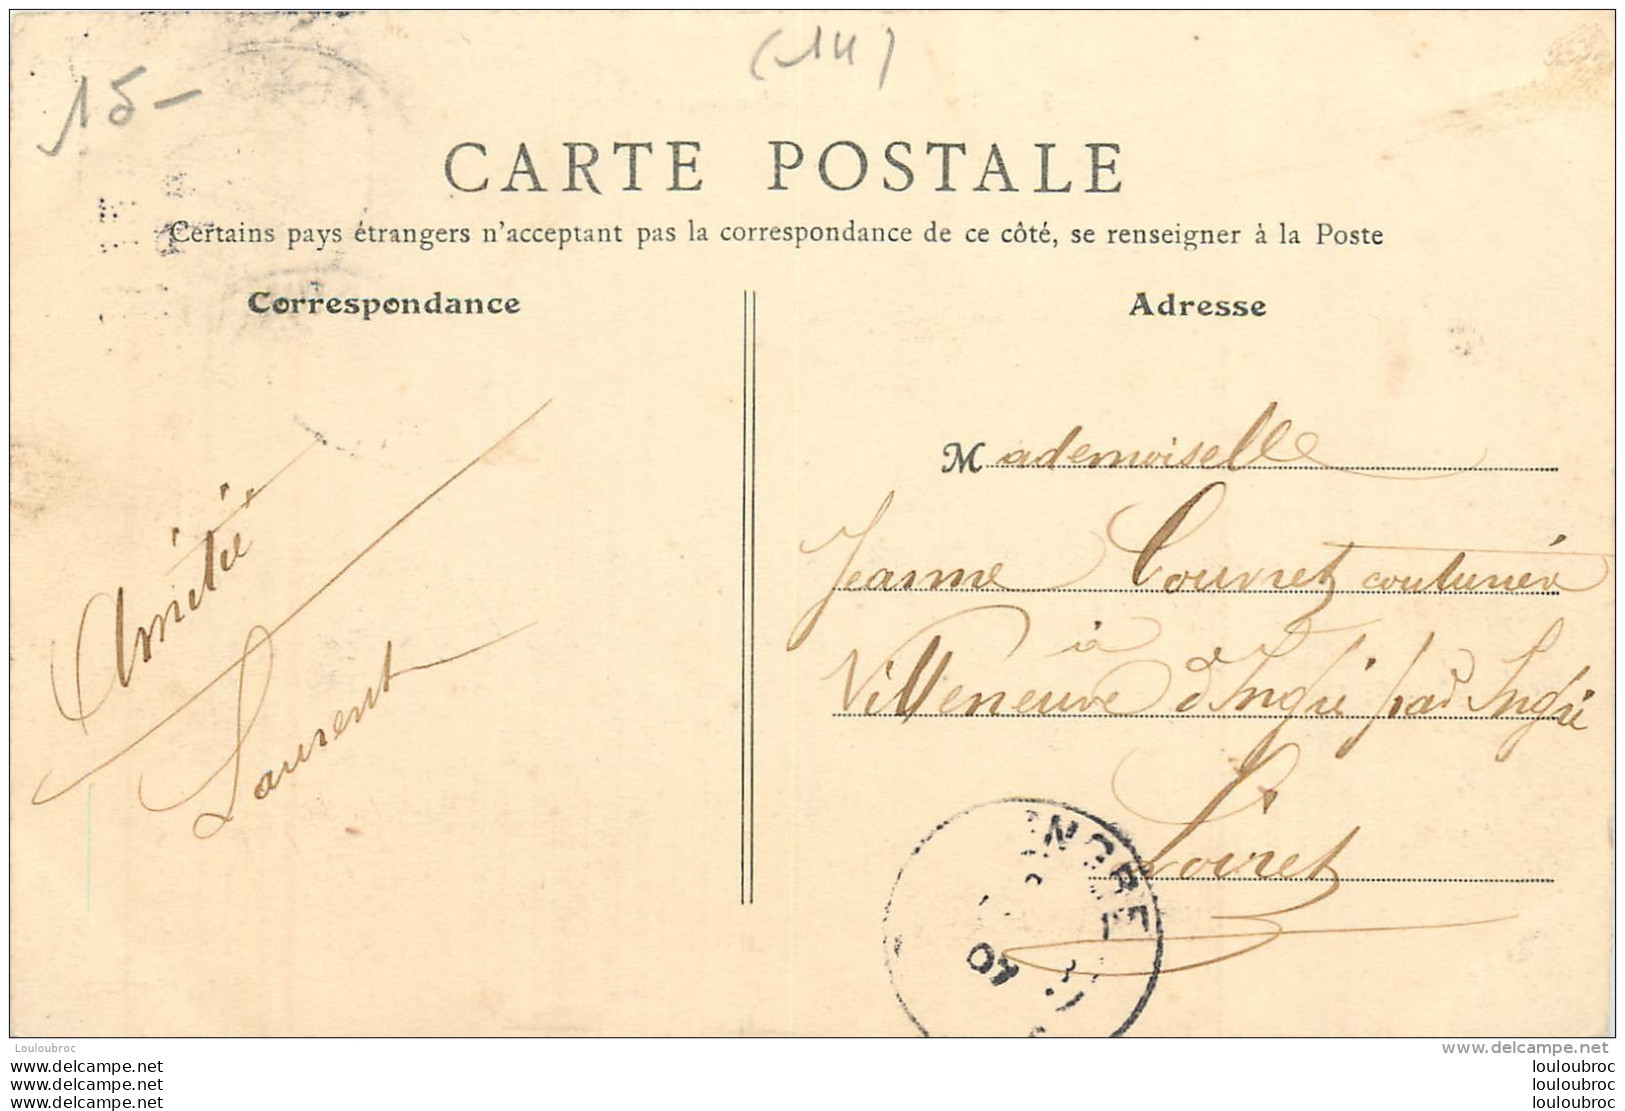 15-
(14)
CARTE POSTALE
Certains pays étrangers n'acceptant pas la correspondance de ce côté, se renseigner à la Poste
Correspondance
Adresse
Amitié
Laurent
Mademoiselle
Jeanne Couvret couturière
à
Villeneuve d'Ingré par Ingré
Loiret
INGRE
Louloubroc
louloubroc.net
louloubroc.net
louloubroc.net
www.delcampe.net
louloubroc
louloubroc
louloubroc